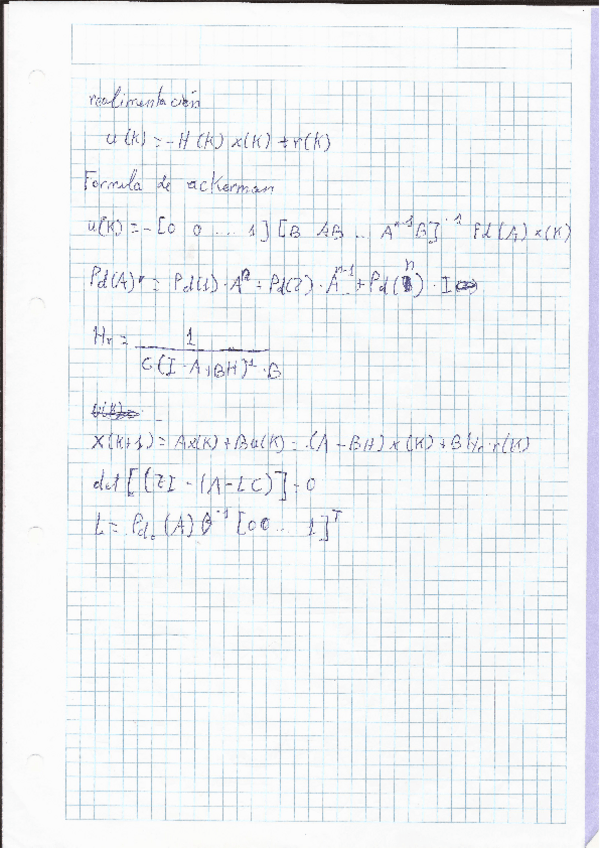 realimentación
u(k) = -H(k) x(k) + r(k)
Formula de ackerman
u(k) = -[0 0 ... 1] [B AB ... Aⁿ⁻¹B]⁻¹ Pd(A) x(k)
Pd(A) = Pd(1)·Aⁿ + Pd(2)·Aⁿ⁻¹ + Pd(n)·I
Hr = 1
C(I-A+BH)⁻¹·B
x(k+1) = Ax(k) + Bu(k) = (A-BH) x(k) + B Hr r(k)
det[(zI - (A-LC)] = 0
L = Pdo(A) θ⁻¹ [00 ... 1]ᵀ